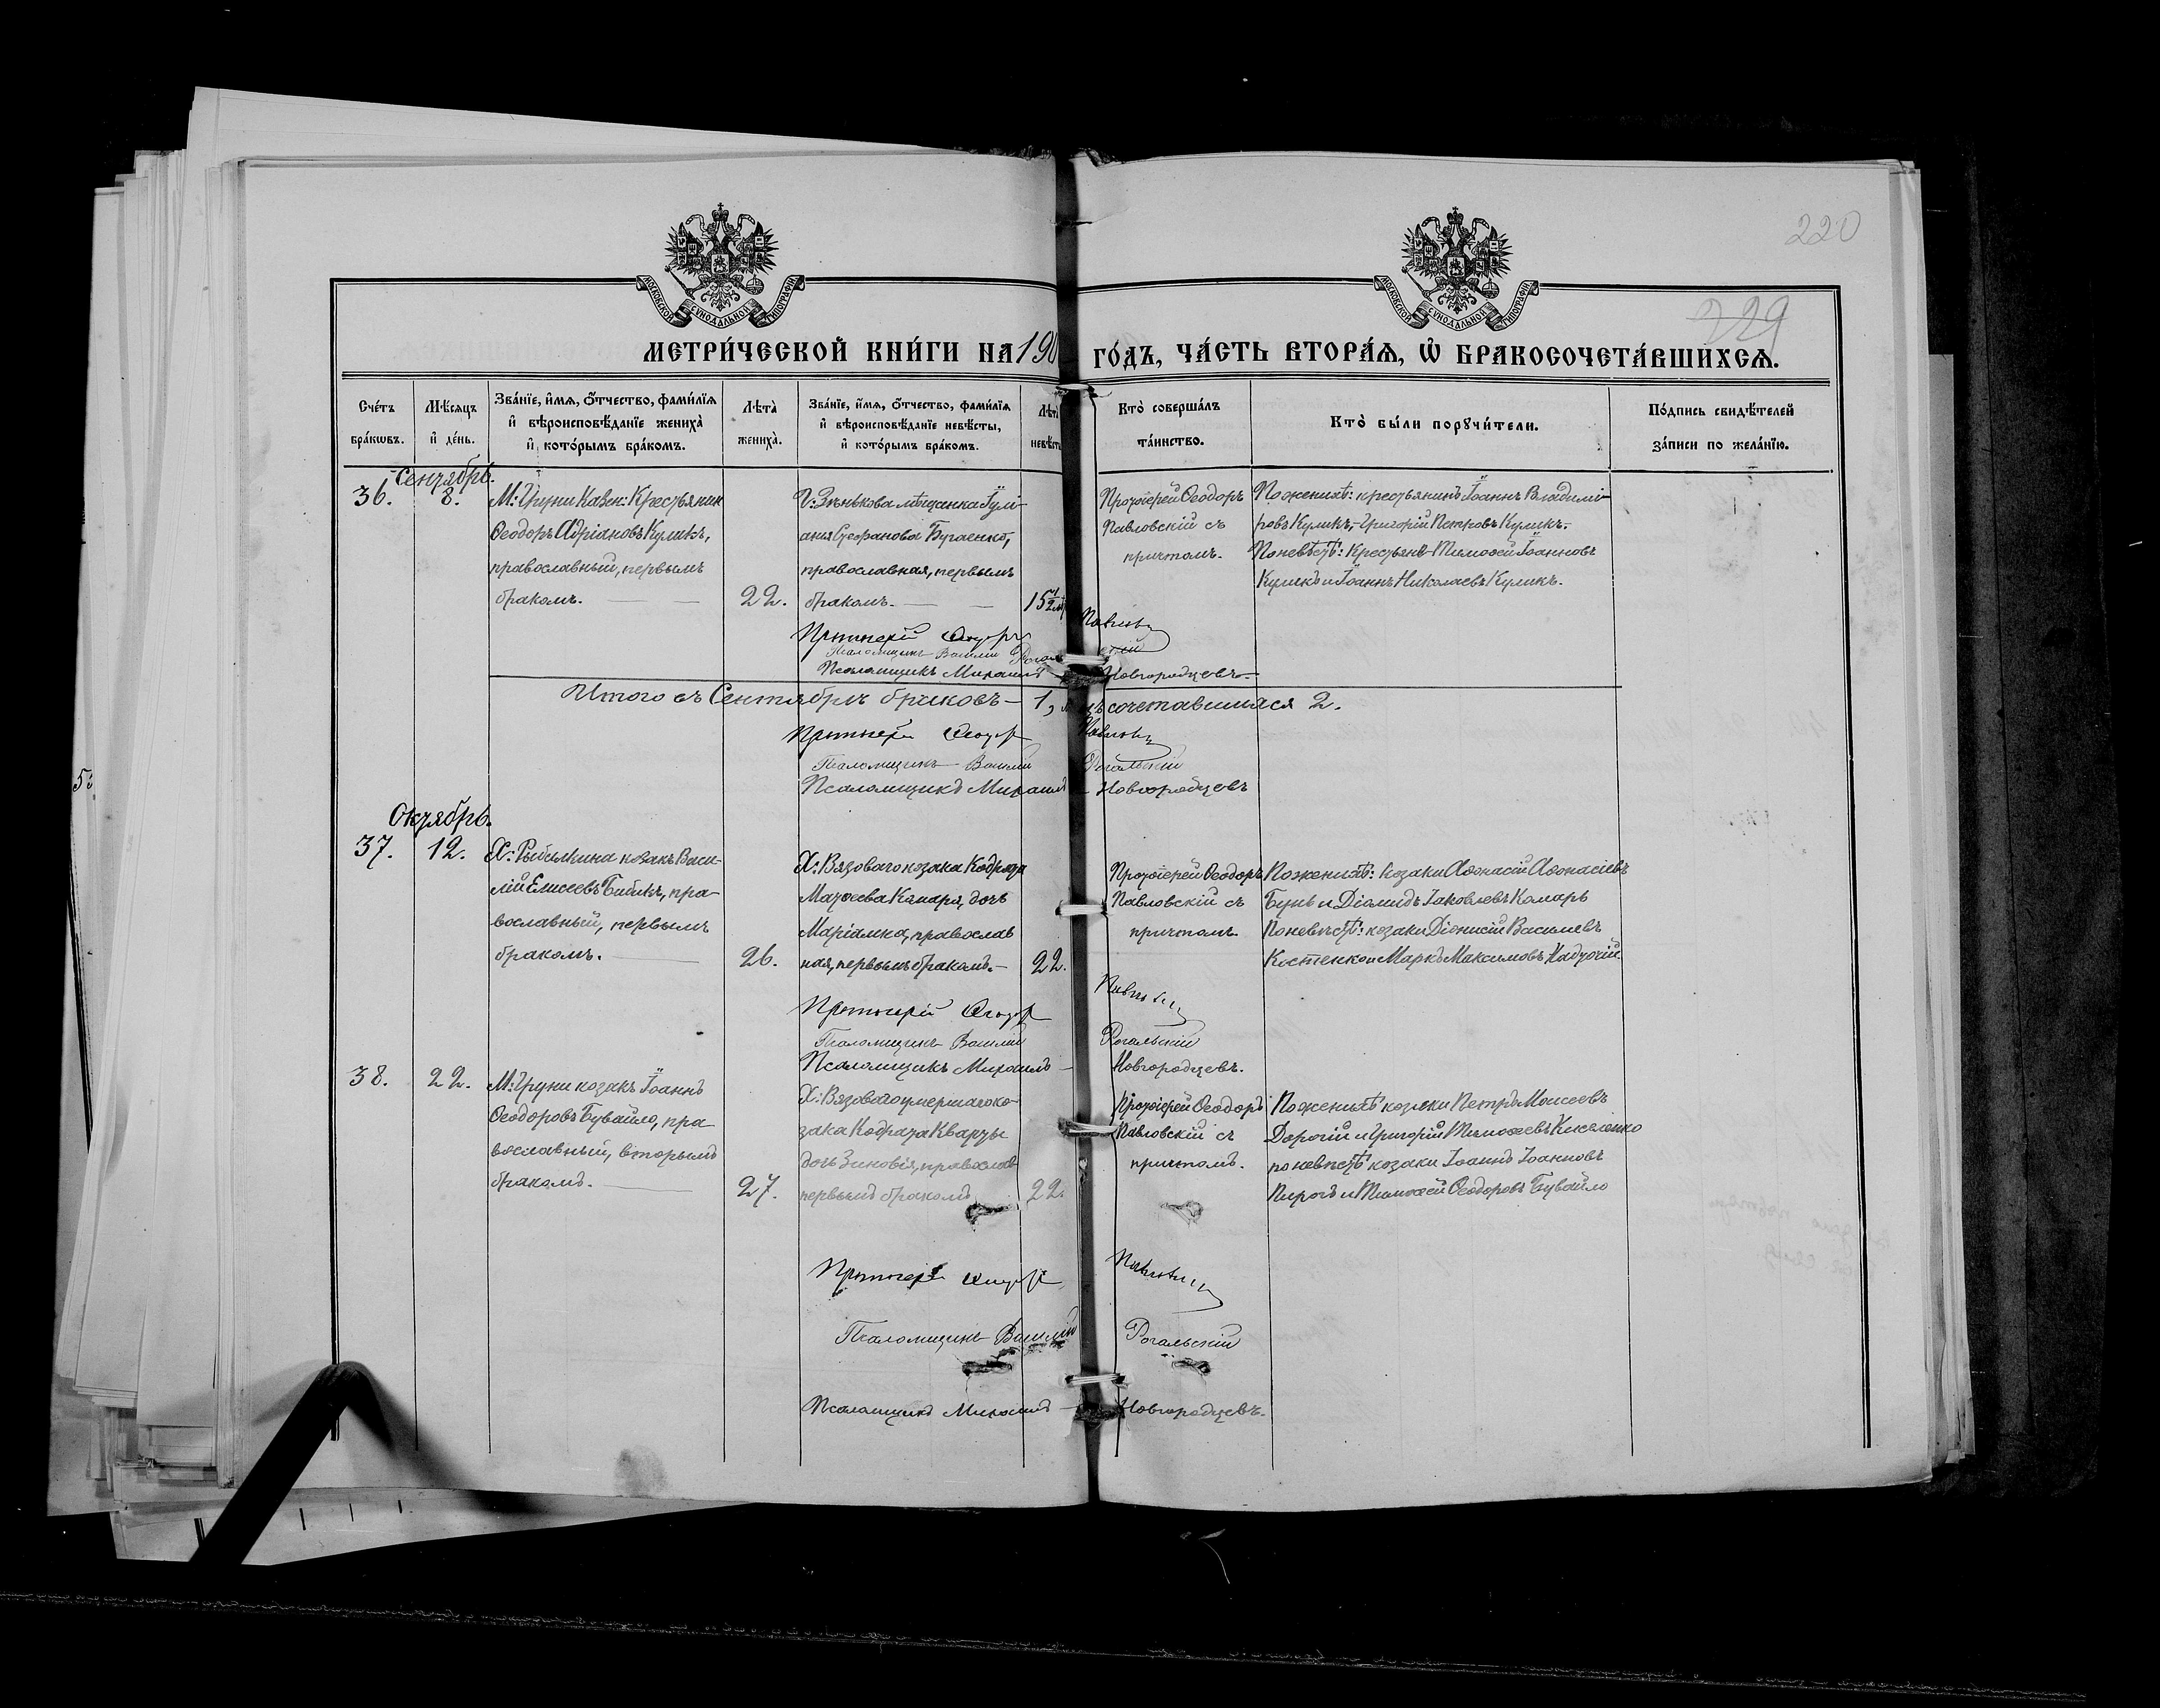 220
229
МОСКОВСКОЙ СѴНОДАЛЬНОЙ ТИПОГРАФІИ
МОСКОВСКОЙ СѴНОДАЛЬНОЙ ТИПОГРАФІИ
МЕТРИ́ЧЕСКОЙ КНИ́ГИ НА 190 ГО́ДЪ, ЧА́СТЬ ВТОРА́Ѧ, Ѽ БРАКОСОЧЕТА́ВШИХСѦ.
Сче́тъ бра́кѡвъ.
Мѣ́сѧцъ и҆ де́нь.
Зва́нїе, и҆́мѧ, ѻ҆́тчество, фами́лїѧ
и҆ вѣроисповѣ́данїе жениха̀
и҆ кото́рымъ бра́комъ.
Лѣта̀ жениха̀.
Зва́нїе, и҆́мѧ, ѻ҆́тчество, фами́лїѧ
и҆ вѣроисповѣ́данїе невѣ́сты,
и҆ кото́рымъ бра́комъ.
Кто̀ соверша́лъ
та́инство.
Кто̀ бы́ли порꙋчи́тели.
По́дпись свидѣ́телей
за́писи по жела́нїю.
Сентябрь.
36.
8.
М: Груни Казен: Крестьянин
Ѳеодоръ Адріановъ Куликъ,
православный, первымъ
бракомъ.
22.
Г: Зѣнькова мѣщанка Іулі-
анія Стефанова Бугаенко,
православная, первымъ
бракомъ.
15 1/2
Протоіерей Ѳеодоръ
Павловскій съ
причтомъ.
По женихѣ: крестьянинъ Іоаннъ Владимі-
ровъ Куликъ, Григорій Петровъ Куликъ.
По невѣстѣ: Крестьяне Тимоѳей Іоанновъ
Куликъ и Іоаннъ Николаевъ Куликъ.
Протоіерей Ѳеодоръ Павловскій
Псаломщикъ Василій
Псаломщикъ Михаилъ Новгородцевъ
Итого въ Сентябрѣ браковъ 1, сочетавшихся 2.
Протоіерей Ѳеодоръ
Псаломщикъ Василій Рогальскій
Псаломщикъ Михаилъ Новгородцевъ
Октябрь.
37.
12.
Х: Рыбалкина козакъ Васи-
лій Елисеевъ Бибикъ, пра-
вославный, первымъ
бракомъ.
26.
Х: Вязоваго козака Кодрата
Матѳеева Комаря, дочь
Маріамна, православ
ная, первымъ бракомъ.
22.
Протоіерей Ѳеодоръ
Павловскій съ
причтомъ
По женихѣ: козаки Аѳонасій Аѳонасіевъ
и Діамидъ Іаковлевъ Комарь
По невѣстѣ: козаки Діонисій Василіевъ
Костенко и Маркъ Максимовъ
Протоіерей Ѳеодоръ
Псаломщикъ Василій Рогальскій
Псаломщикъ Михаилъ Новгородцевъ.
38.
22.
М: Груни козакъ Іоаннъ
Ѳеодоровъ Бувайло, пра
вославный, вторымъ
бракомъ.
27.
Х: Вязоваго умершаго ко-
зака Кодрата Кварты
дочь Зиновія, православ
первымъ бракомъ
22.
Протоіерей Ѳеодоръ
Павловскій съ
причтомъ.
По женихѣ козаки Петръ Моисеевъ
Дорогій и Григорій Тимоѳеевъ Киселенко
по невѣстѣ козаки Іоаннъ Іоанновъ
Пирогъ и Тимоѳей Ѳеодоровъ Бувайло
Протоіерей Ѳеодоръ
Псаломщикъ Василій Рогальскій
Псаломщикъ Михаилъ Новгородцевъ.